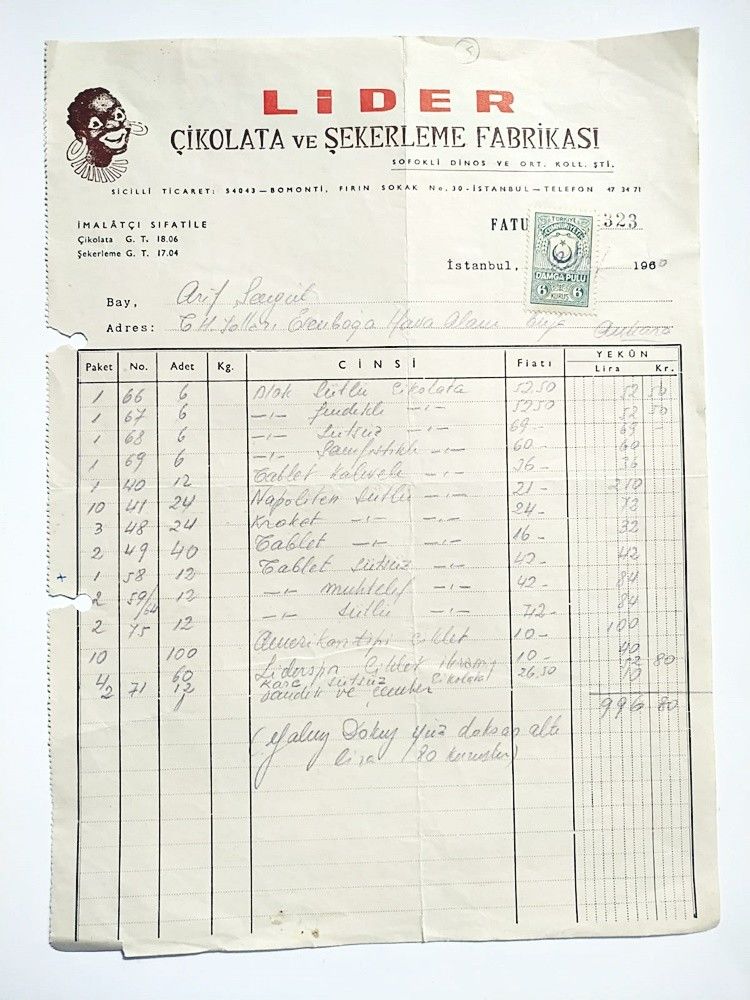 LiDER
ÇİKOLATA VE ŞEKERLEME FABRİKASI
SOFOKLİ DİNOS VE ORT. KOLL. ŞTİ.
SİCİLLİ TİCARET: 54043—BOMONTİ, FIRIN SOKAK No. 30-İSTANBUL—TELEFON 47 34 71
İMALÂTÇI SIFATİLE
Çikolata G. T. 18.06
Şekerleme G. T. 17.04
FATU 323
TÜRKİYE
CUMHURİYETİ
DAMGA PULU
6 KURUŞ 6
İstanbul, 1960
Bay, Arif
Adres: Hava Alanı Ankara
Paket No. Adet Kg. CİNSİ Fiatı YEKÛN
Lira Kr.
1 66 6 Blok Sütlü Çikolata 52.50 52 50
1 67 6 —ı— Fındıklı —ı— 52.50 52 50
1 68 6 —ı— Sütsüz —ı— 69- 69
1 69 6 —ı— Şamfıstıklı —ı— 60- 60
1 40 12 Tablet Kahveli —ı— 36- 36
10 41 24 Napoliten Sütlü —ı— 21- 210
3 48 24 Kroket —ı— —ı— 24- 72
2 49 40 Tablet —ı— —ı— 16- 32
1 58 12 Tablet Sütsüz —ı— 42- 42
2 59/64 12 —ı— muhtelif —ı— 42- 84
2 75 12 —ı— Sütlü —ı— 42- 84
10 100 Amerikan tipi Ciklet 10- 100
4 60 Ciklet 10- 40
2 71 12 Kare Sütsüz Çikolata 26,50 52 80
Sandık ve çember 10
996 80
(Yalnız Dokuz yüz doksan altı
lira (80 kuruştur)